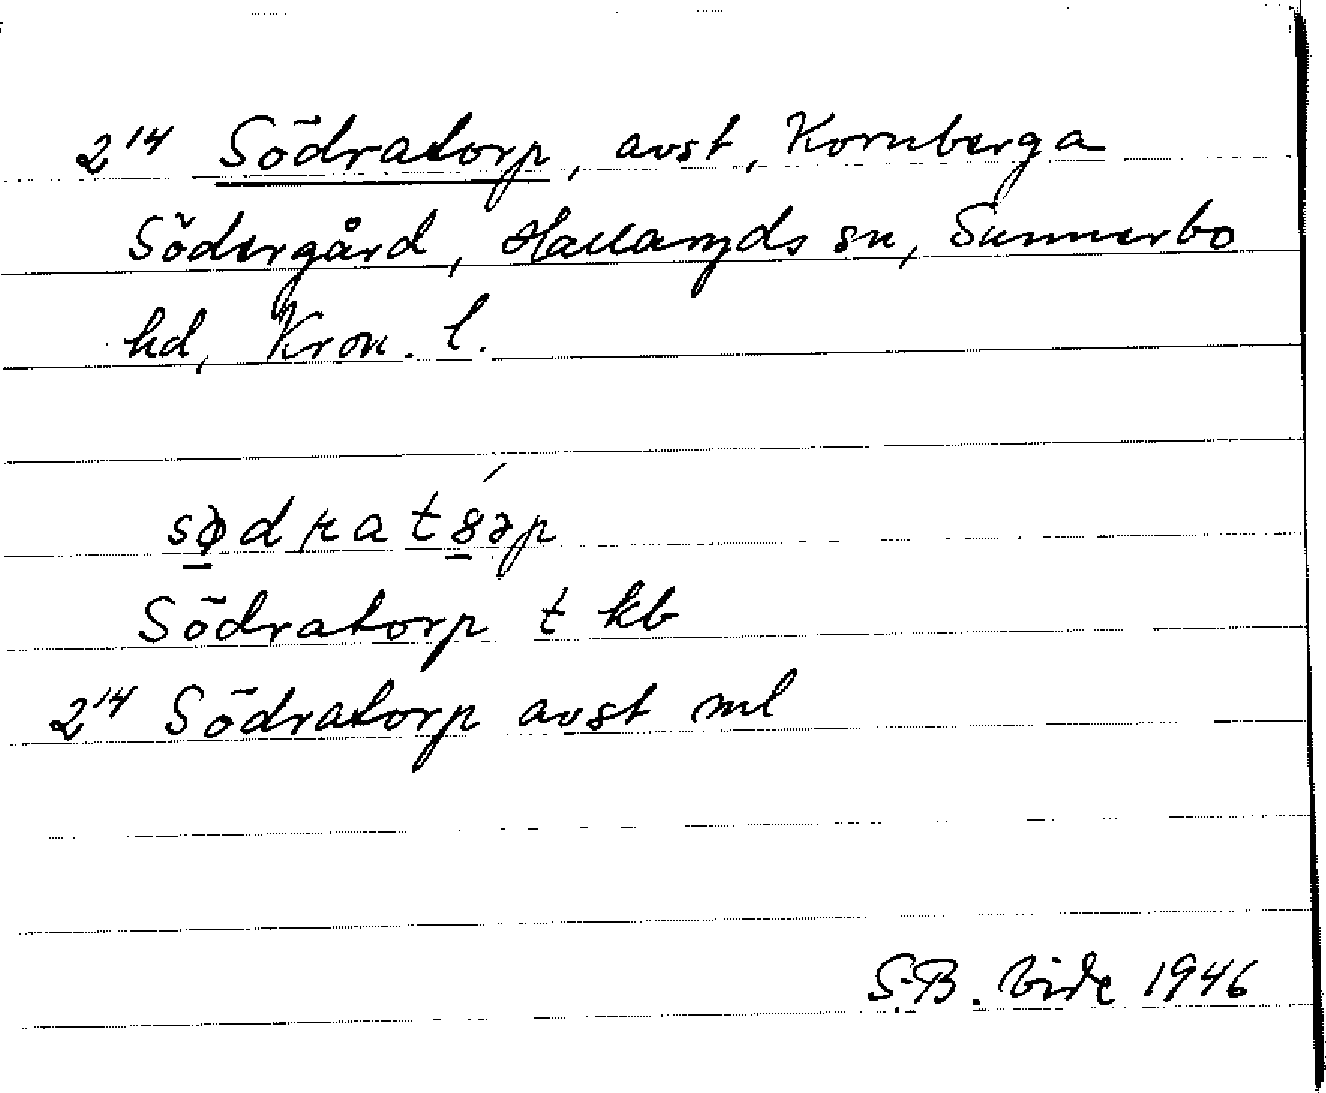 2¹⁴ Södratorp, avst, Kornberga
Södergård, Hallaryds sn, Sunnerbo
hd, Kron. l.
Södratorp t kb
2¹⁴ Södratorp avst ml
S-B. Vide 1946